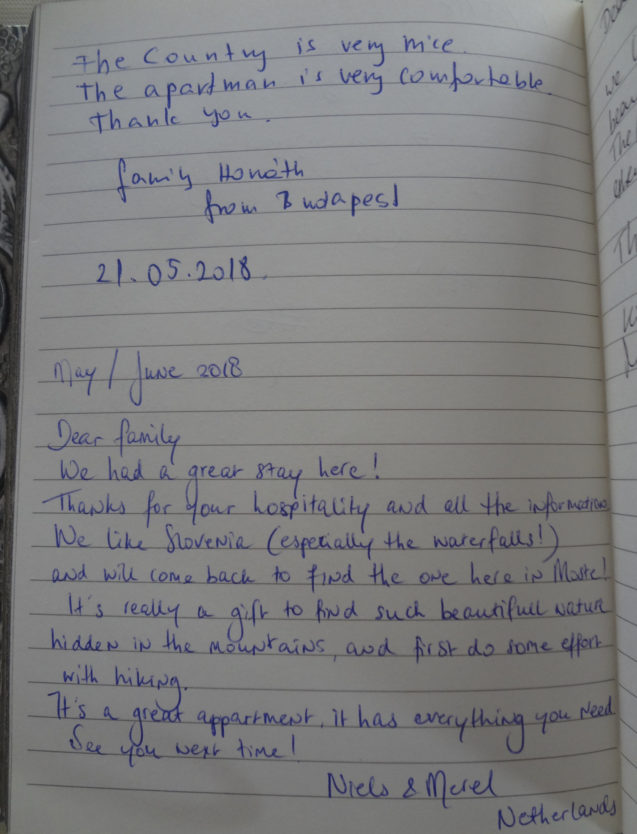 The Country is very nice.
The apartman is very comfortable.
Thank you.
family Horváth
from Budapest
21.05.2018.
May / June 2018
Dear family
We had a great stay here!
Thanks for your hospitality and all the information
We like Slovenia (especially the waterfalls!)
and will come back to find the one here in Moste!
It's really a gift to find such beautifull nature
hidden in the mountains, and first do some effort
with hiking.
It's a great appartment, it has everything you need.
See you next time!
Niels & Merel
Netherlands